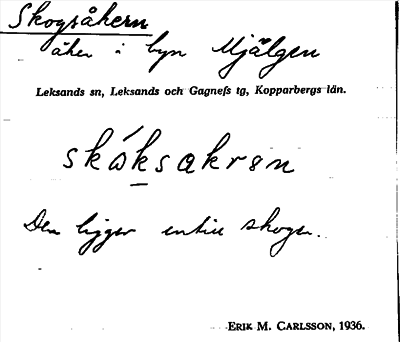 Skogsåkern
åker i byn Mjälgen
Leksands sn, Leksands och Gagnefs tg, Kopparbergs län.
skó̱ksakrən
Den ligger intill skogen.
ERIK M. CARLSSON, 1936.